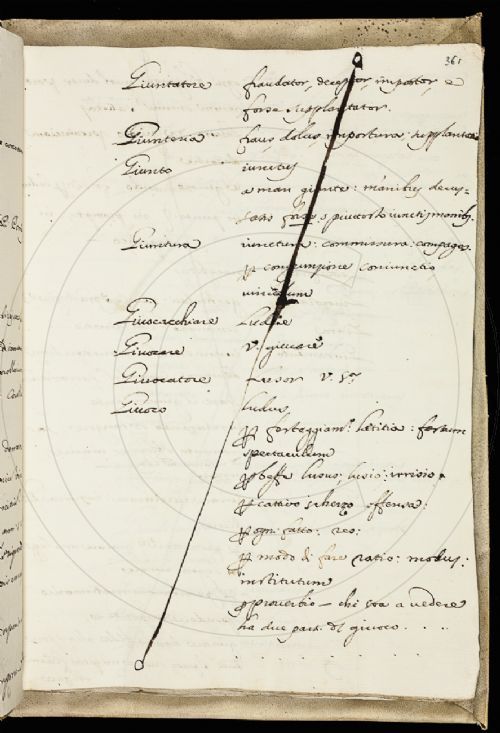 361
Giuntatore fraudator, deceptor, impostor, e
forse supplantator.
Giunteria fraus dolus, impostura, supplantatio
Giunto iunctus
a man giunte: manibus decus=
satis forse, o piutosto iunctis manib.
Giuntura iunctura: commissura: compages.
p congiunzione coniunctio
vinculum
Giuocacchiare
Giuocare v. giucare
Giuocatore lusor v. Sr.
Giuoco ludus
p festeggiam.o lætitia: festum
spectaculum
p beffa lusus; lusio: irrisio.
p cattivo scherzo offensa:
p ogni fatto: res:
p modo di fare ratio: modus:
institutum
proverbio - chi sta a vedere
ha due parti del giuoco . . . .